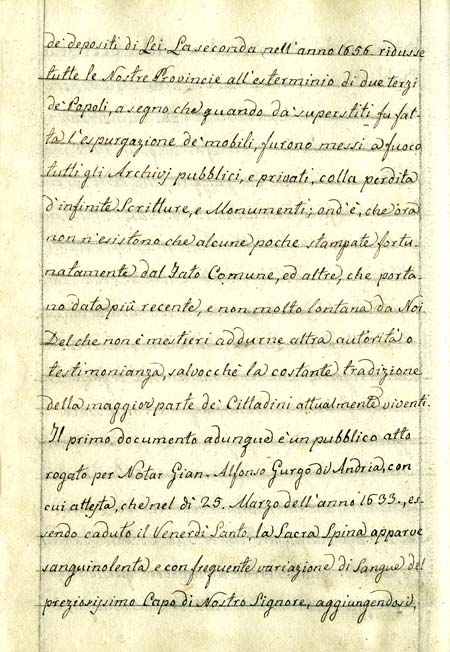 de' depositi di Lei. La seconda nell'anno 1656. ridusse
tutte le Nostre Provincie all'esterminio di due terzi
de' Popoli, a segno che quando da' superstiti fu fat-
ta l'espurgazione de' mobili, furono messi a fuoco
tutti gli Archivj pubblici, e privati, colla perdita
d'infinite Scritture, e Monumenti; ond'è, che ora
non n'esistono che alcune poche stampate fortu-
natamente dal Fato Comune, ed altre, che porta-
no data più recente, e non molto lontana da Noi.
Del che non è mestieri addurne altra autorità o
testimonianza, salvocchè la costante tradizione
della maggior parte de' Cittadini attualmente viventi.
Il primo documento adunque è un pubblico atto
rogato per Notar Gian-Alfonso Gurgo di Andria, con
cui attesta, che nel dì 25. Marzo dell'anno 1633., es-
sendo caduto il Venerdì Santo, la Sacra Spina apparve
sanguinolenta e con frequente variazione di Sangue del
preziosissimo Capo di Nostro Signore, aggiungendosi,